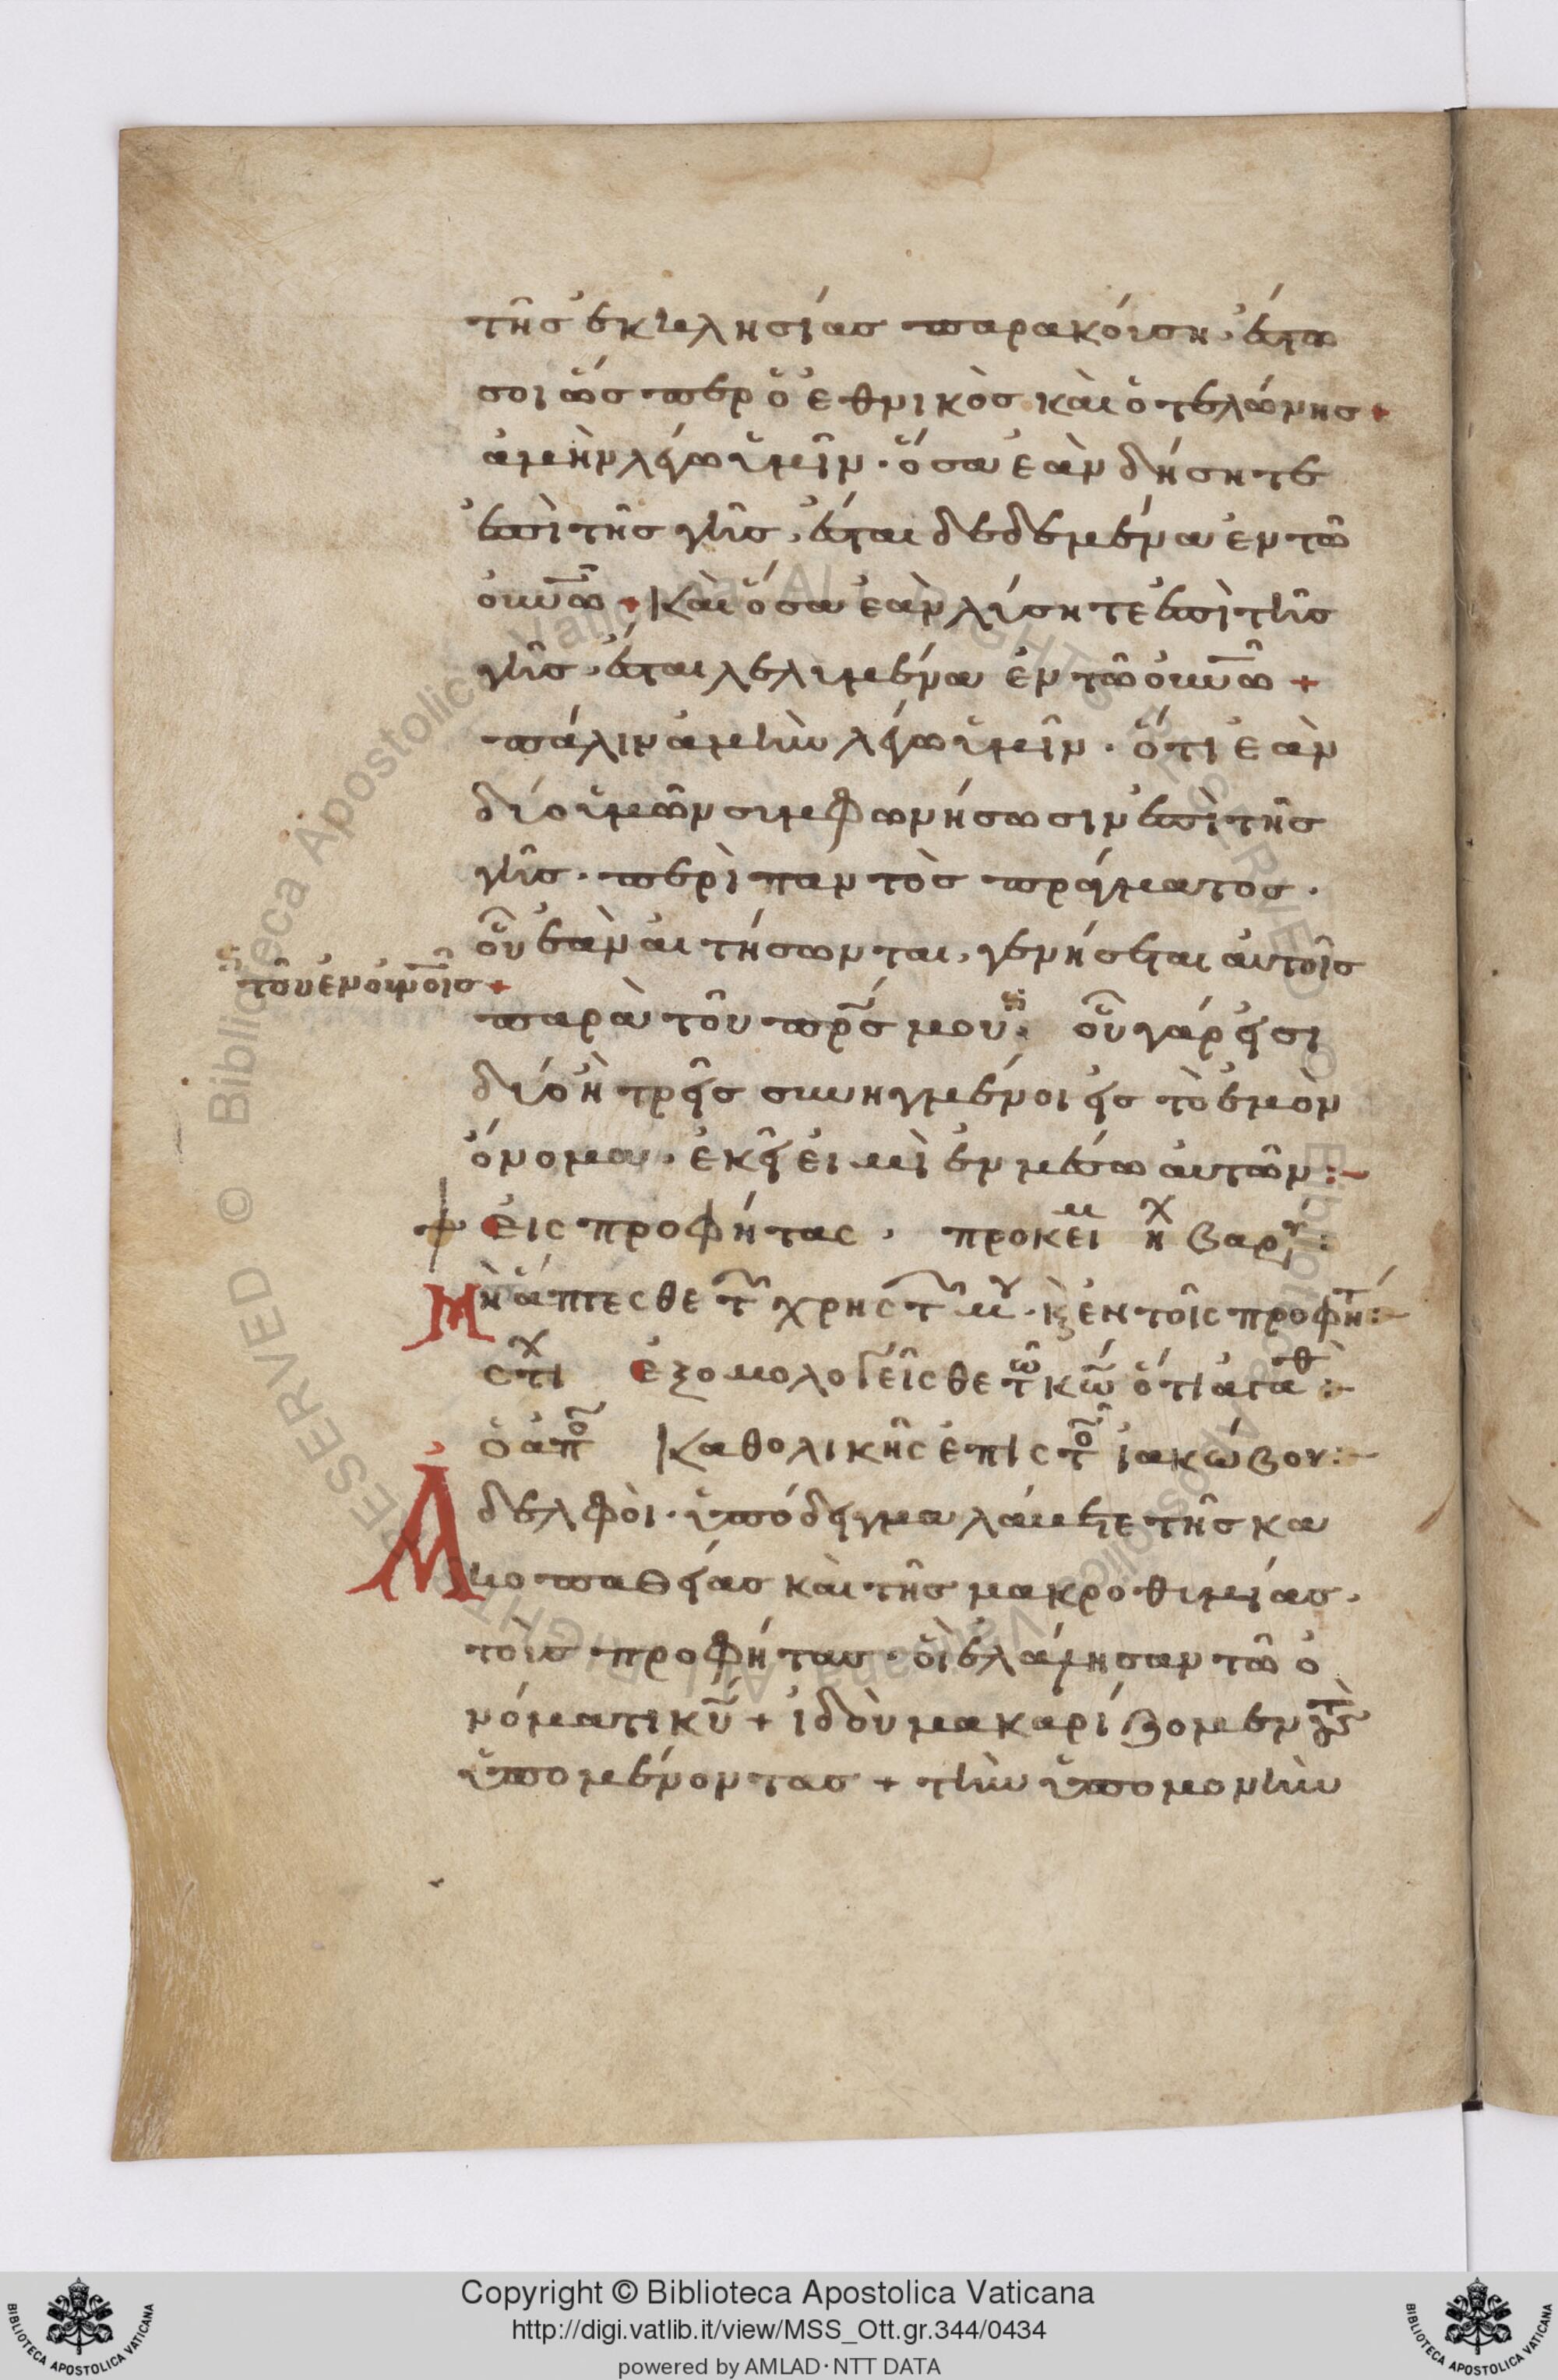 τῆσ ἐκκλησίασ παρακούση, ἔστω
σοι ὥσπερ ὁ ἐθνικὸσ καὶ ὁ τελώνησ +
ἀμὴν λέγω ὑμῖν · ὅσα ἐὰν δήσητε
ἐπὶ τῆσ γῆσ, ἔσται δεδεμένα ἐν τῶ
οὐνῶ + Καὶ ὅσα ἐὰν λύσητε ἐπὶ τῆσ
γῆσ, ἔσται λελυμένα ἐν τῶ οὐνῶ +
πάλιν ἀμὴν λέγω ὑμῖν · ὅτι ἐὰν
δύο ὑμῶν συμφωνήσωσιν ἐπὶ τῆσ
γῆσ · περὶ παντὸσ πράγματοσ ·
οὗ ἐὰν αἰτήσωνται, γενήσεται αὐτοῖσ
τοῦ ἐν οὐνοῖσ +
παρὰ τοῦ πρσ μου · οὗ γάρ εἰσι
δύο ἢ τρεῖσ συνηγμένοι εἰσ τὸ ἐμὸν
ὄνομα · ἐκεῖ εἰμὶ ἐν μέσω αὐτῶν :-
+ εἰς προφήτας · προκει μ ηχ βαρυ :
Μὴ ἅπτεσθε τ χρηστ μου · κ ἐν τοῖς προφητ :-
στιχ ἐξομολογεῖσθε τῶ κω ὅτι ἀγαθ :-
ὁ ἀπο Καθολικῆς ἐπιστο ἰακώβου :-
Ἀδελφοὶ · ὑπόδειγμα λάβετε τῆσ κα
κοπαθείασ καὶ τῆσ μακροθυμίασ,
τοὺσ προφήτασ · οἳ ἐλάλησαν τῶ ὀ
νόματι κυ + ἰδοὺ μακαρίζομεν τοὺς
ὑπομένοντασ + τὴν ὑπομονὴν
Copyright © Biblioteca Apostolica Vaticana
http://digi.vatlib.it/view/MSS_Ott.gr.344/0434
powered by AMLAD·NTT DATA